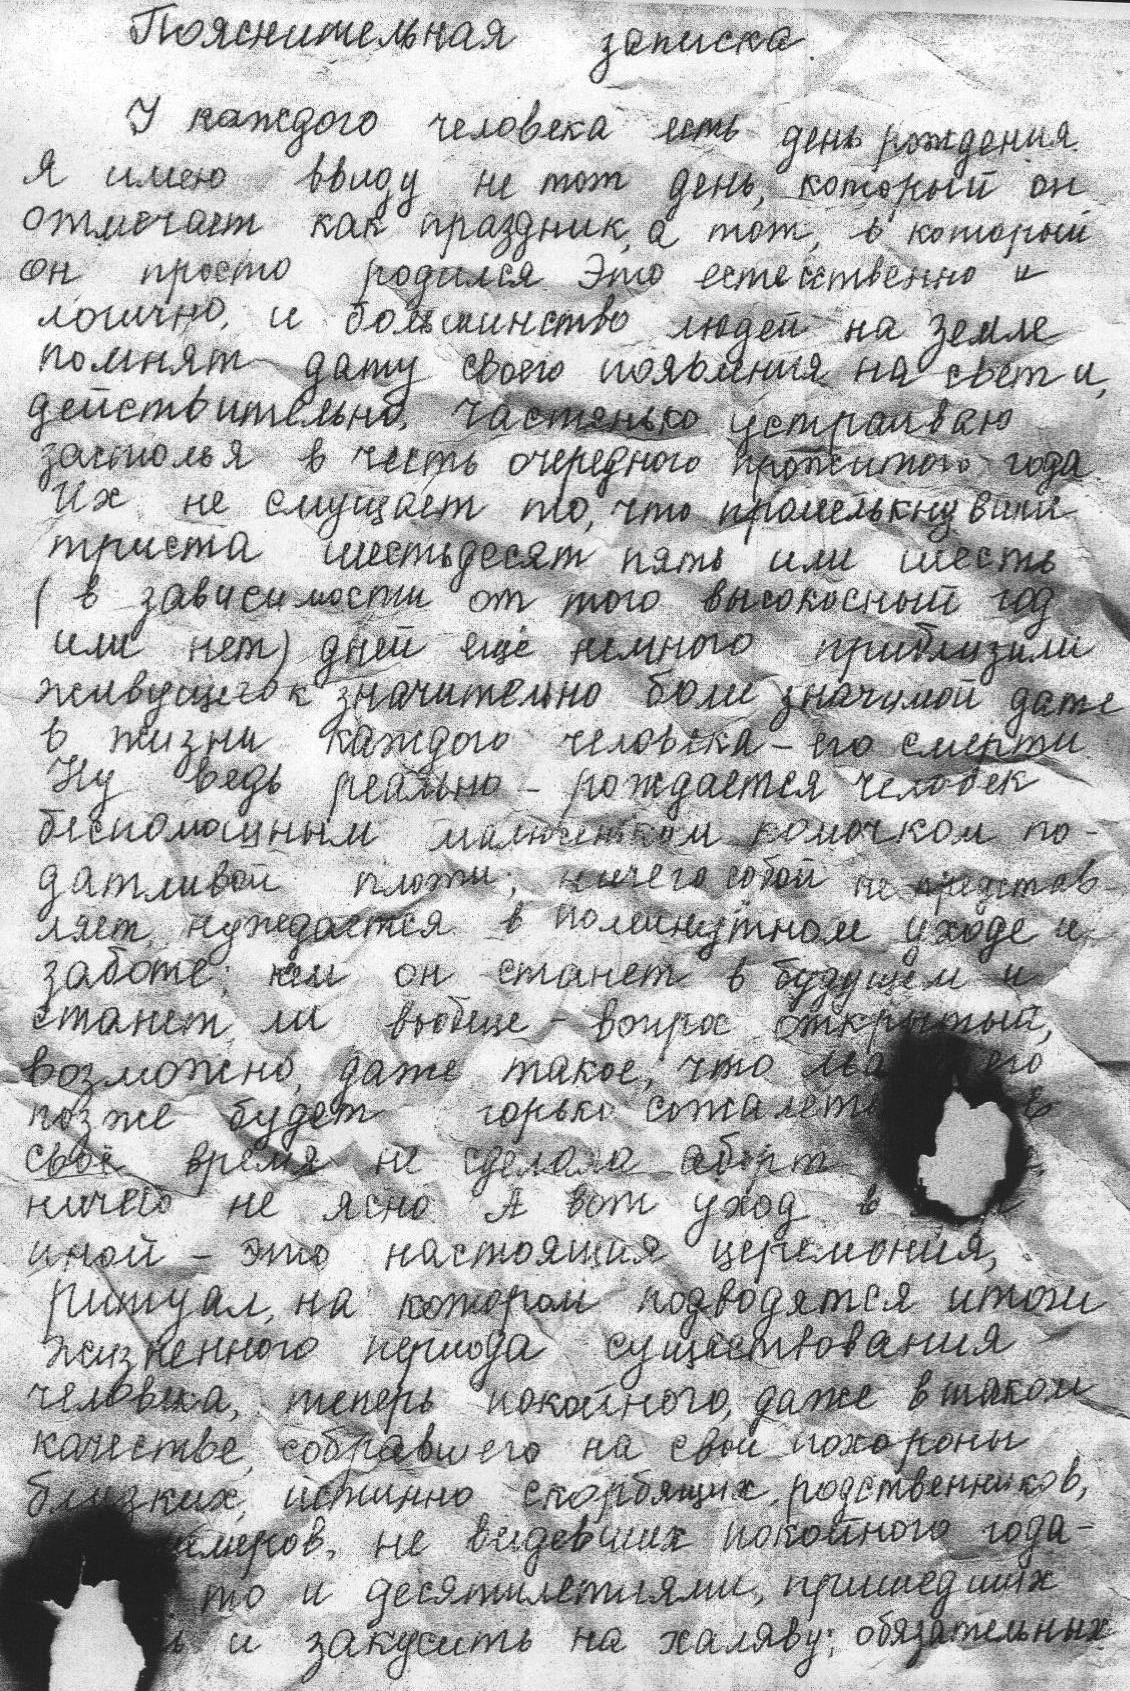 Пояснительная записка.
У каждого человека есть день рождения.
Я имею ввиду не тот день, который он
отмечает как праздник, а тот, в который
он просто родился. Это естественно и
логично, и большинство людей на Земле
помнят дату своего появления на свет и,
действительно, частенько устраиваю
застолья в честь очередного прожитого года.
Их не смущает то, что промелькнувшие
триста шестьдесят пять или шесть
(в зависимости от того високосный год
или нет) дней ещё немного приблизили
живущего к значительно более значимой дате
в жизни каждого человека – его смерти
Ну ведь реально – рождается человек
беспомощным комочком по-
датливой плоти; ничего собой не представ-
ляет, нуждается в поминутном уходе и
заботе; кем он станет в будущем и
станет ли вообще – вопрос открытый,
возможно, даже такое, что его
позже будет горько
своё время не сделала аборт
ничего не ясно. А вот уход в
иной – это настоящая церемония,
ритуал, на котором подводятся итоги
жизненного периода существования
человека, теперь покойного, даже в таком
качестве, собравшего на свои похороны
близких, истинно скорбящих родственников,
не видевших покойного года-
то и десятилетиями, пришедших
и закусить на халяву; обязательных